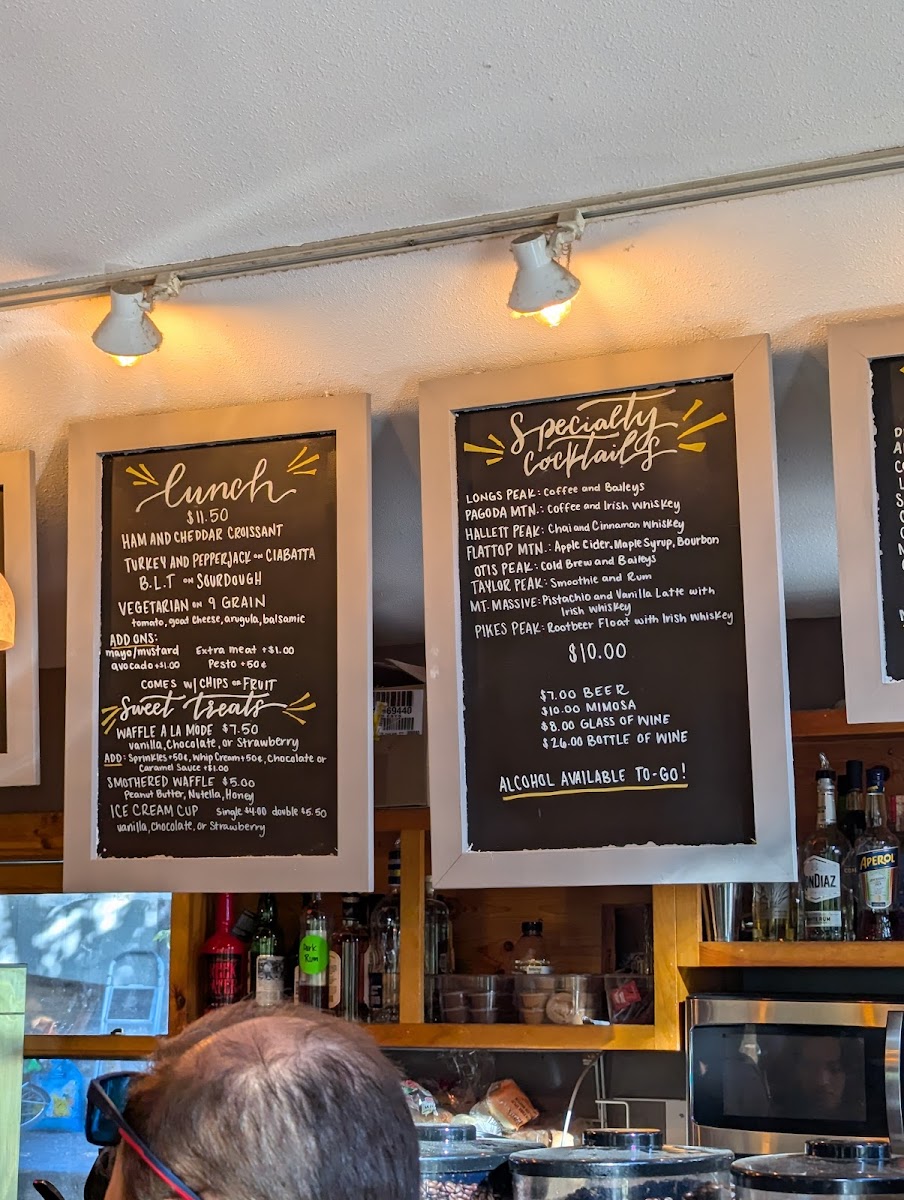 Lunch
$11.50
HAM AND CHEDDAR CROISSANT
TURKEY AND PEPPERJACK ON CIABATTA
B.L.T ON SOURDOUGH
VEGETARIAN ON 9 GRAIN
tomato, goat cheese, arugula, balsamic
ADD ONS:
mayo/mustard Extra meat +$1.00
avocado +$1.00 Pesto +50¢
COMES W/ CHIPS OR FRUIT
Sweet Treats
WAFFLE A LA MODE $7.50
vanilla, Chocolate, or Strawberry
ADD: Sprinkles +50¢, Whip Cream +50¢, Chocolate or
Caramel Sauce +$1.00
SMOTHERED WAFFLE $5.00
Peanut Butter, Nutella, Honey
ICE CREAM CUP Single $4.00 double $5.50
vanilla, Chocolate, or Strawberry
Specialty
Cocktails
LONGS PEAK: Coffee and Baileys
PAGODA MTN.: Coffee and Irish Whiskey
HALLETT PEAK: Chai and Cinnamon Whiskey
FLATTOP MTN.: Apple Cider, Maple Syrup, Bourbon
OTIS PEAK: Cold Brew and Baileys
TAYLOR PEAK: Smoothie and Rum
MT. MASSIVE: Pistachio and Vanilla Latte with
Irish Whiskey
PIKES PEAK: Rootbeer Float with Irish Whiskey
$10.00
$7.00 BEER
$10.00 MIMOSA
$8.00 GLASS OF WINE
$26.00 BOTTLE OF WINE
ALCOHOL AVAILABLE TO-GO!
Dark
Rum
APEROL